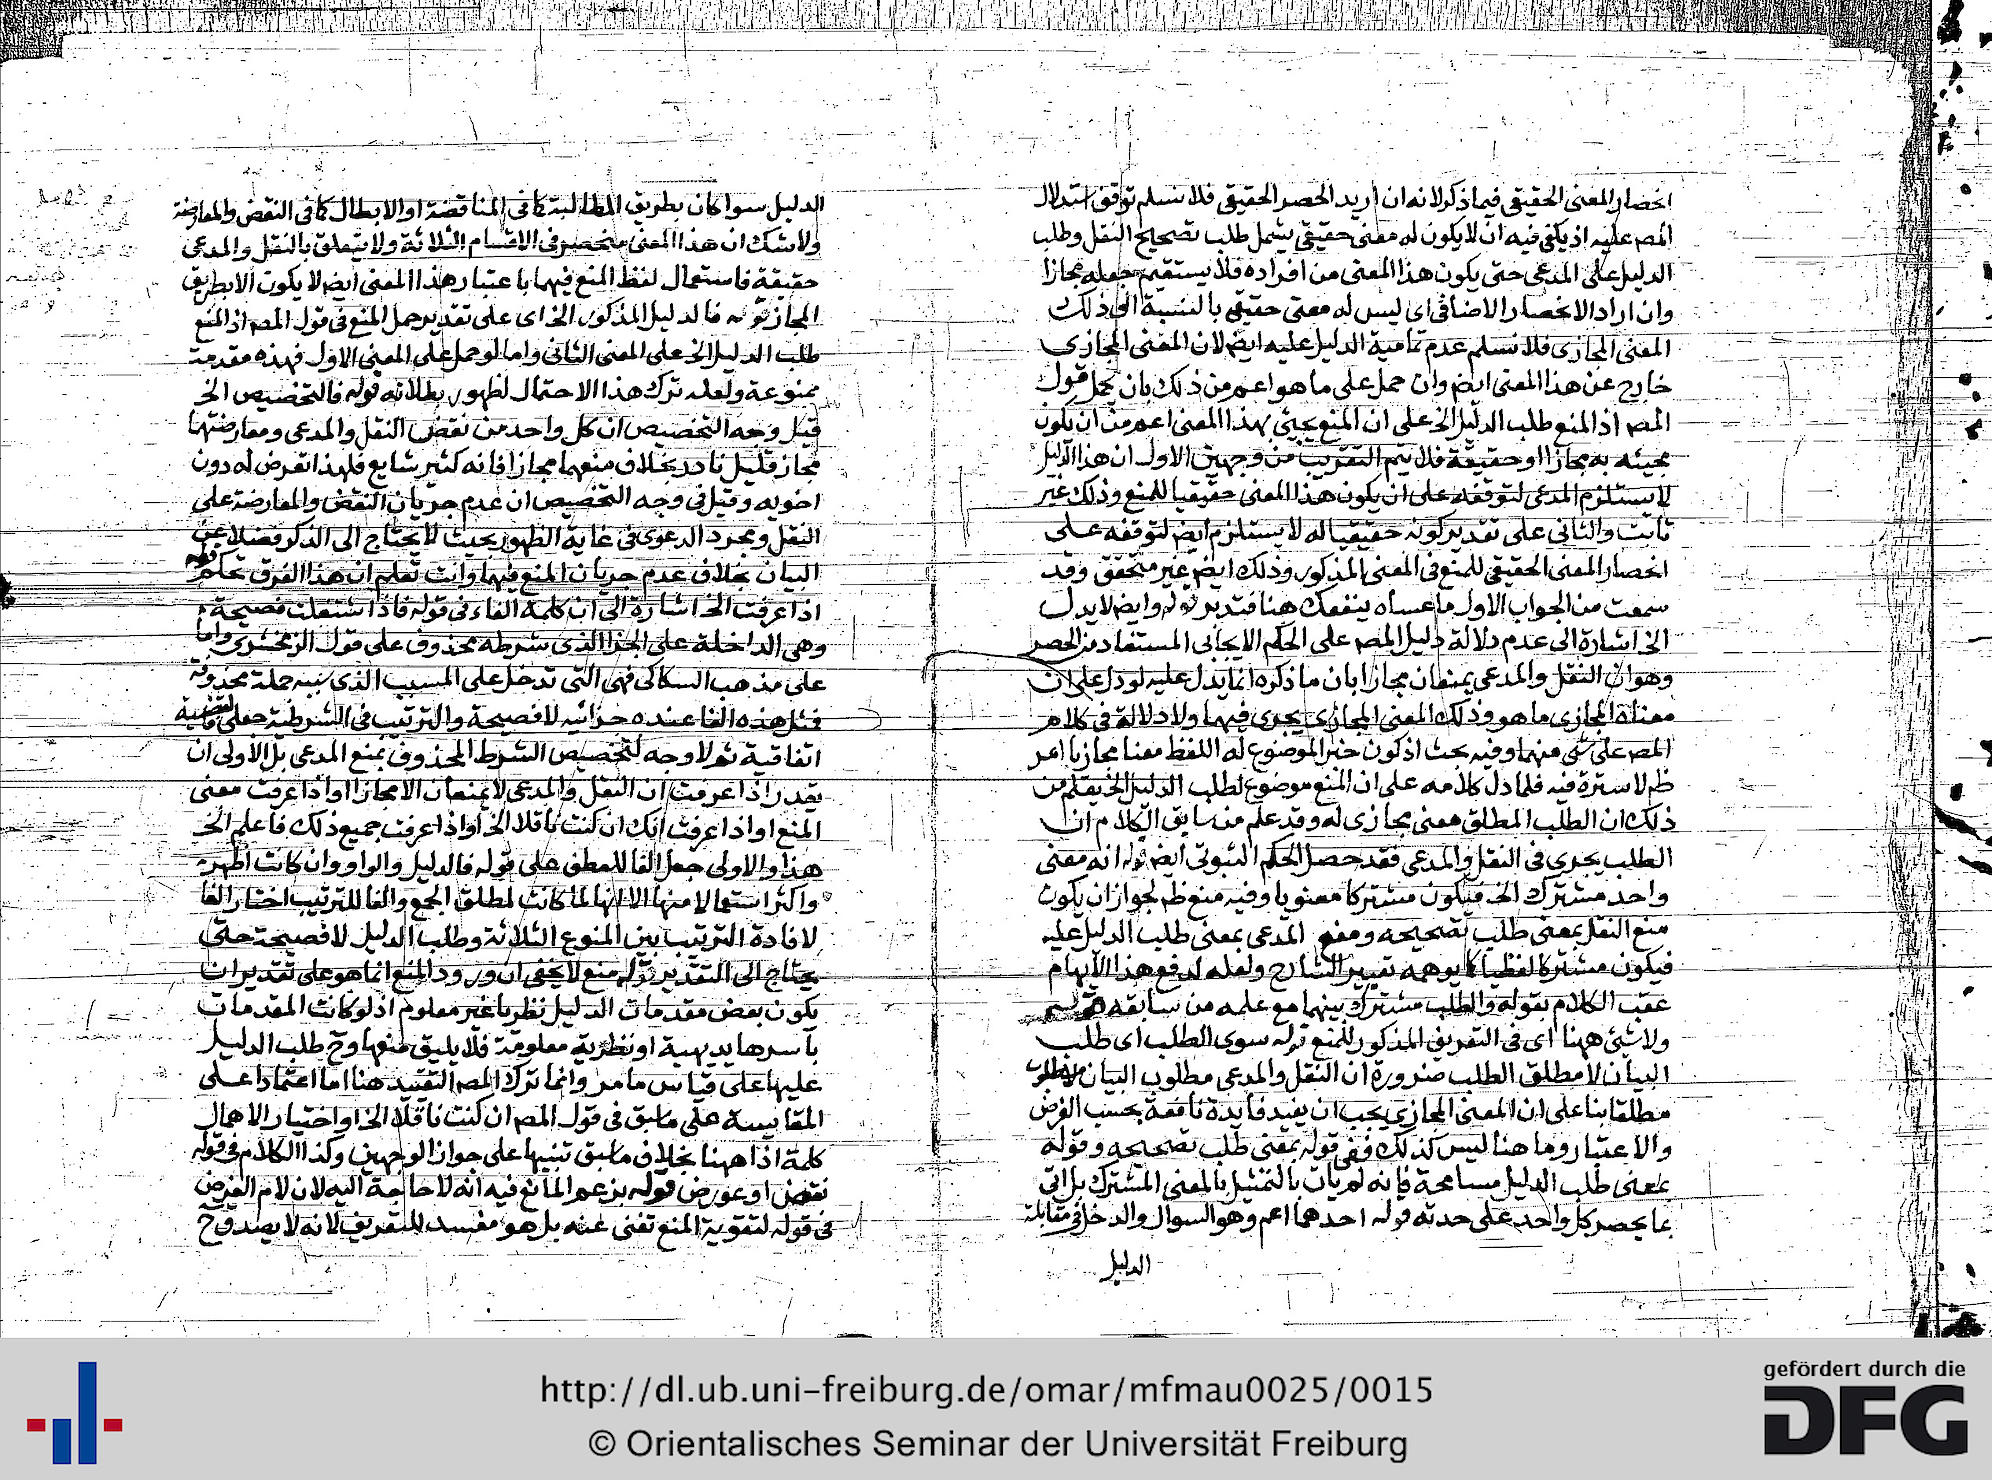 انحصار المعنى الحقيقي فيما ذكر لانه ان اريد الحصر الحقيقي فلا نسلم توقف استدلال
المصـ عليه اذ يكفي فيه ان لا يكون له معنى حقيقي يشمل طلب تصحيح النقل وطلب
الدليل على المدعى حتى يكون هذا المعنى من افراده فلا يستقيم جعله مجازا
وان اراد الانحصار الاضافى اى ليس له معنى حقيقي بالنسبة الى ذلك
المعنى المجازى فلا نسلم عدم تمامية الدليل عليه ايضـ لان المعنى المجازى
خارج عن هذا المعنى ايضـ وان حمل على ما هو اعم من ذلك بان يحمل قول
المصـ اذ المنع طلب الدليل الخ على ان المنع يجئ بهذا المعنى اعم من ان يكون
مجيئه به مجازا او حقيقة فلا يتم التقريب من وجهين الاول ان هذا الدليل
لا يستلزم المدعى لتوقفه على ان يكون هذا المعنى حقيقيا للمنع وذلك غير
ثابت والثانى على تقدير كونه حقيقيا له لا يستلزم ايضـ لتوقفه على
انحصار المعنى الحقيقي للمنع في المعنى المذكور وذلك ايضـ غير متحقق وقد
سمعت من الجواب الاول ما عساه ينفعك هنا فتدبر قوله وايضـ لا يدل
الخ اشارة الى عدم دلالة دليل المصـ على الحكم الايجابى المستفاد من الحصر
وهو ان النقل والمدعى يمنعان مجازا بان ما ذكره انما يدل عليه لو دل على ان
معناه المجازى ما هو وذلك المعنى المجازى يجرى فيهما ولا دلالة في كلام
المصـ على شئ منهما وفيه بحث اذ كون جزء الموضوع له اللفظ معنا مجازيا امر
ظـ لا سترة فيه فلما دل كلامه على ان المنع موضوع لطلب الدليل الخ يعلم من
ذلك ان الطلب المطلق معنى مجازى له وقد علم من سابق الكلام ان
الطلب يجرى في النقل والمدعى فقد حصل الحكم الثبوتى ايضـ قوله انه معنى
واحد مشترك الخ فيكون مشتركا معنويا وفيه منع ظـ لجواز ان يكون
منع النقل بمعنى طلب تصحيحه ومنع المدعى بمعنى طلب الدليل عليه
فيكون مشتركا لفظيا كما يوهمه تعبير الشارح ولعله لدفع هذا الايهام
عقب الكلام بقوله والطلب مشترك بينهما مع علمه من سابقه
ولا شئ ههنا اى في التعريف المذكور للمنع قوله سوى الطلب اى طلب
البيان لا مطلق الطلب ضرورة ان النقل والمدعى مطلوب البيان
مطلقا بنا على ان المعنى المجازى يجب ان يفيد فايدة نافعة بحسب الغرض
والاعتبار وما هنا ليس كذلك ففى قوله بمعنى طلب تصحيحه وقوله
بمعنى طلب الدليل مسامحة فانه لم يات بالتمثيل بالمعنى المشترك بل اتى
بما يحصر كل واحد على حدته قوله احدهما اعم وهو السوال والدخل في مقابلة
الدليل
الدليل سوا كان بطريق المطالبة كما في المناقضة او الابطال كما في النقض والمعارضة
ولا شك ان هذا المعنى منحصر في الاقسام الثلاثة ولا يتعلق بالنقل والمدعى
حقيقة فاستعمال لفظ المنع فيهما باعتبار هذا المعنى ايضـ لا يكون الا بطريق
المجاز قوله فالدليل المذكور الخ اى على تقدير حمل المنع في قول المصـ اذ المنع
طلب الدليل الخ على المعنى الثانى واما لو حمل على المعنى الاول فهذه مقدمة
ممنوعة ولعله ترك هذا الاحتمال لظهور بطلانه قوله فالتخصيص الخ
قيل وجه التخصيص ان كل واحد من نقض النقل والمدعى ومعارضتهما
مجاز قليل نادر بخلاف منعهما مجازا فانه كثير شايع فلهذا تعرض له دون
اخويه وقيل في وجه التخصيص ان عدم جريان النقض والمعارضة على
النقل ومجرد الدعوى في غاية الظهور بحيث لا يحتاج الى الذكر فضلا عن
البيان بخلاف عدم جريان المنع فيهما وانت تعلم ان هذا الفرق تحكم قوله
اذا عرفت الخ اشارة الى ان كلمة الفاء في قوله فاذا اشتغلت فصيحة
وهى الداخلة على الجزا الذى شرطه محذوف على قول الزمخشرى واما
على مذهب السكاكى فهى التى تدخل على المسبب الذى سببه جملة محذوفة
فمثل هذه الفا عنده جزائية لا فصيحة والترتيب في الشرطية جعلى فالقضية
اتفاقية ثم لا وجه لتخصيص الشرط المحذوف بمنع المدعى بل الاولى ان
يقدر اذا عرفت ان النقل والمدعى لا يمنعان الا مجازا او اذا عرفت معنى
المنع او اذا عرفت انك ان كنت ناقلا الخ او اذا عرفت جميع ذلك فاعلم الخ
هذا والاولى جعل الفا للعطف على قوله فالدليل والواو وان كانت اظهر
واكثر استعمالا منها الا انها لما كانت لمطلق الجمع والفا للترتيب اختار الفا
لافادة الترتيب بين المنوع الثلاثة وطلب الدليل لا فصيحة حتى
يحتاج الى التقدير قوله منع لا يخفى ان ورود المنع انما هو على تقدير ان
يكون بعض مقدمات الدليل نظريا غير معلوم اذ لو كانت المقدمات
باسرها بديهية او نظرية معلومة فلا يليق منعها وح طلب الدليل
عليها على قياس ما مر وانما ترك المصـ التقييد هنا اما اعتمادا على
المقايسة على ما سبق في قول المصـ ان كنت ناقلا الخ او اختيار الاهمال
كلمة اذا ههنا بخلاف ما سبق تنبيها على جواز الوجهين وكذا الكلام في قوله
نقض او عورض قوله بزعم المانع فيه انه لا حاجة اليه لان لام الغرض
فى قوله لتقوية المنع تغنى عنه بل هو مفسد للتعريف لانه لا يصدق ح
http://dl.ub.uni-freiburg.de/omar/mfmau0025/0015
© Orientalisches Seminar der Universität Freiburg
gefördert durch die
DFG